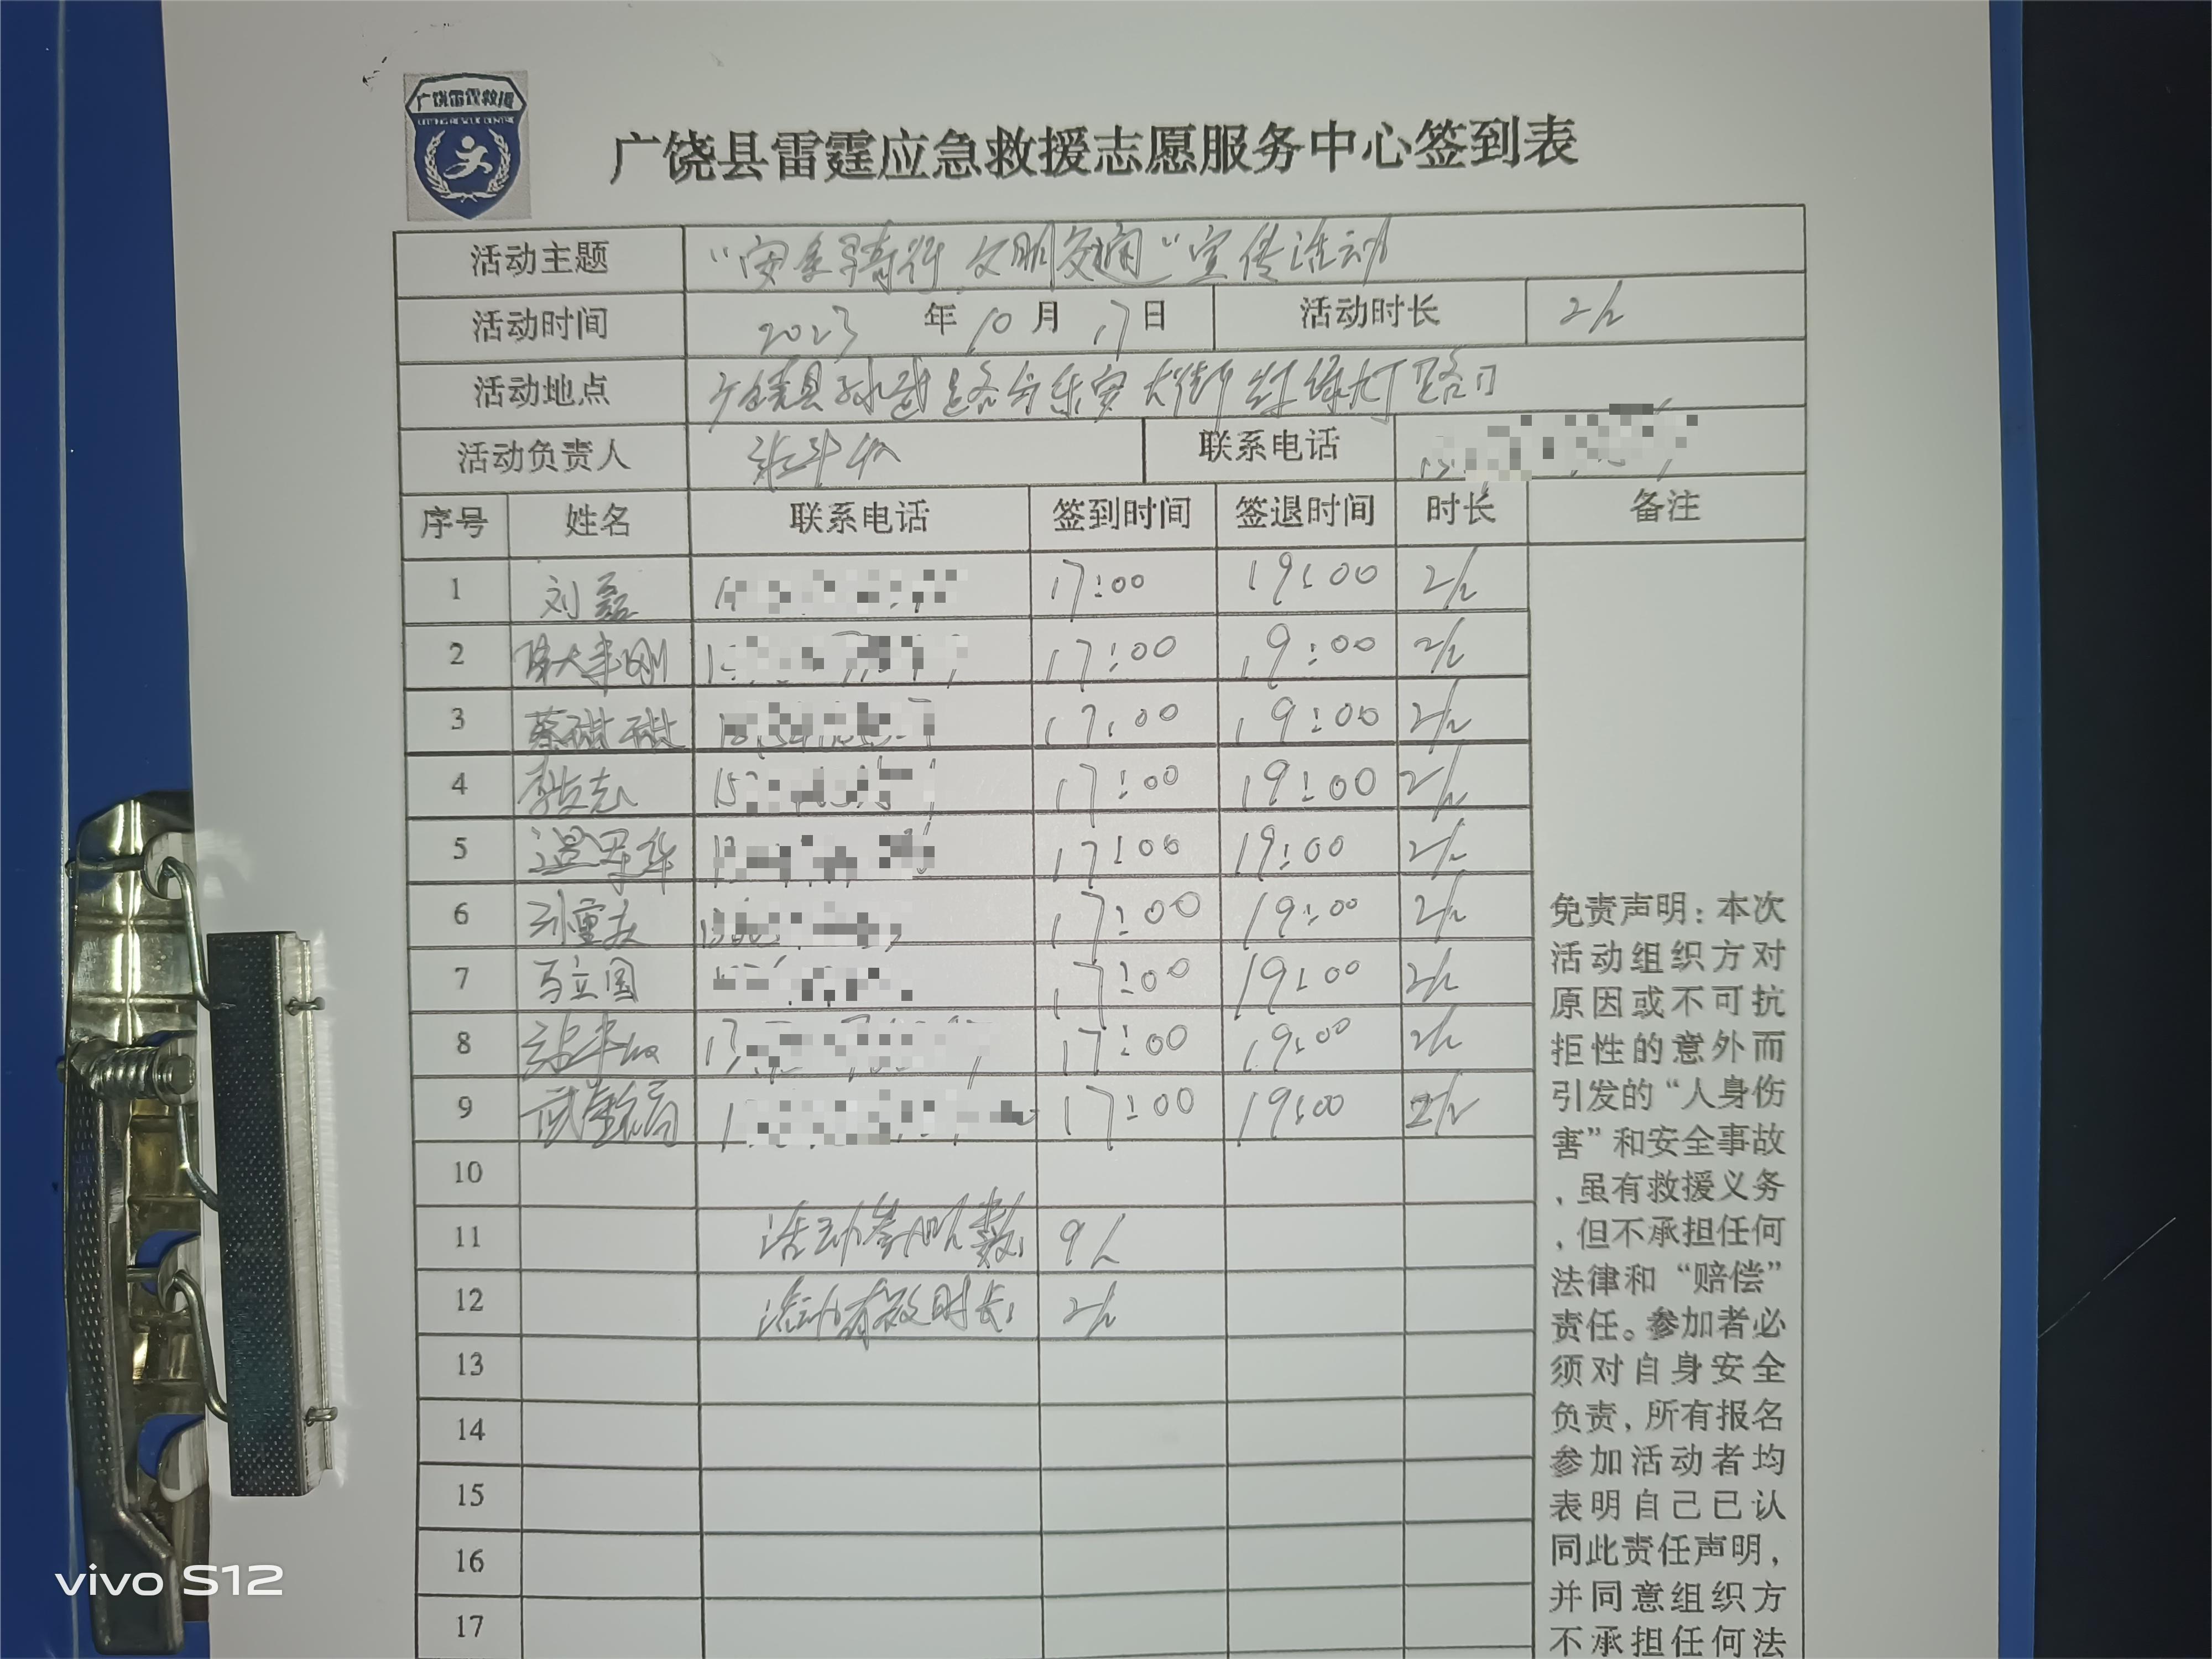 广饶雷霆救援
LEITING RESCUE CENTRE
广饶县雷霆应急救援志愿服务中心签到表
活动主题 “安全骑行 文明交通”宣传活动
活动时间 2023 年 10 月 17 日 活动时长 2h
活动地点 广饶县孙武路与乐安大街红绿灯路口
活动负责人 联系电话
序号 姓名 联系电话 签到时间 签退时间 时长 备注
1 刘磊 17:00 19:00 2h
2 17:00 19:00 2h
3 蔡甜甜 17:00 19:00 2h
4 17:00 19:00 2h
5 17:00 19:00 2h
6 刘重庆 17:00 19:00 2h
7 马立国 17:00 19:00 2h
8 17:00 19:00 2h
9 17:00 19:00 2h
10
11 活动参加人数: 9人
12 活动有效时长: 2h
13
14
15
16
17
免责声明：本次
活动组织方对
原因或不可抗
拒性的意外而
引发的“人身伤
害”和安全事故
，虽有救援义务
，但不承担任何
法律和“赔偿”
责任。参加者必
须对自身安全
负责，所有报名
参加活动者均
表明自己已认
同此责任声明，
并同意组织方
不承担任何法
vivo S12